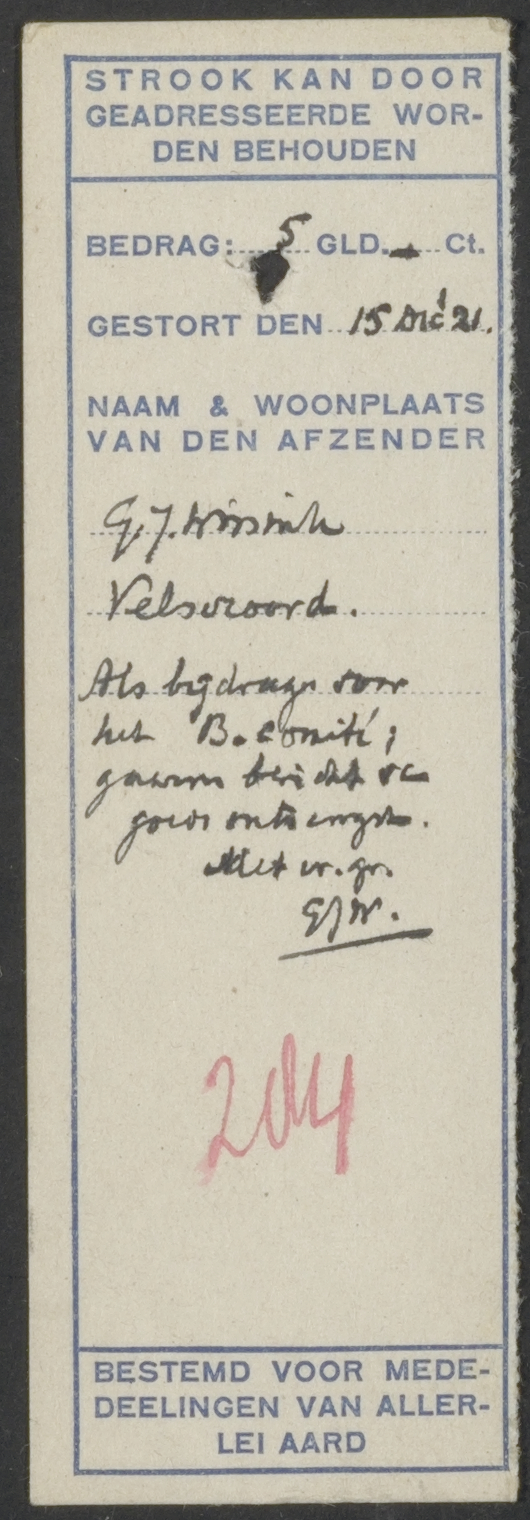 STROOK KAN DOOR
GEADRESSEERDE WOR-
DEN BEHOUDEN
BEDRAG: 5 GLD. — Ct.
GESTORT DEN 15 Dec 21.
NAAM & WOONPLAATS
VAN DEN AFZENDER
G.J.
Velseroord.
Als bijdrage voor
het B. comité;
gaarne bericht
ontvangst.
Met vr. gr.
GJW.
204
BESTEMD VOOR MEDE-
DEELINGEN VAN ALLER-
LEI AARD